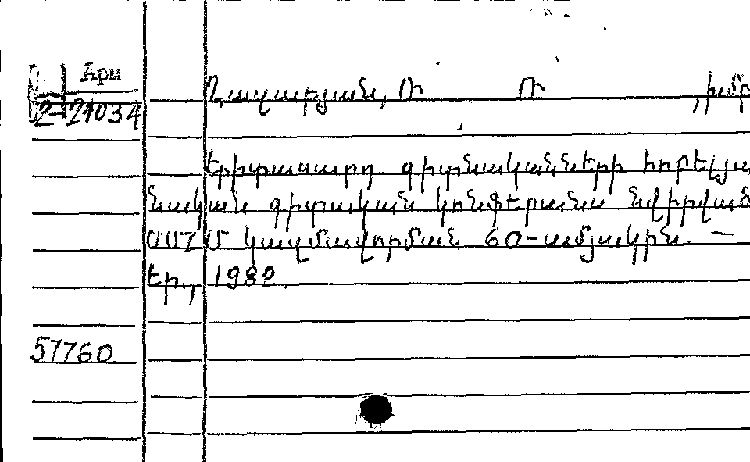 2-21034 Ղազարյան, Ռ Ռ , խմբ
Երիտասարդ գիտնականների հոբելյա
նական գիտական կոնֆերանս նվիրված
ՍՍՀՄ կազմավորման 60-ամյակին. —
Եր., 1982.
57760